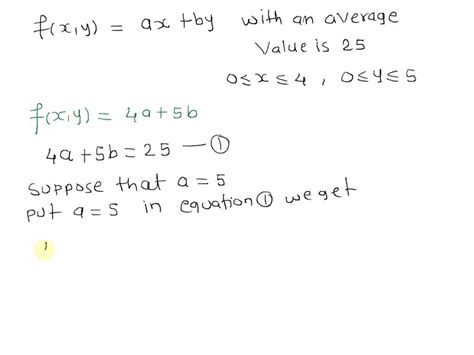 f(x,y) = ax+by with an average
Value is 25
0≤x≤4 , 0≤y≤5
f(x,y) = 4a+5b
4a+5b = 25 — ①
suppose that a = 5
put a = 5 in equation ① we get